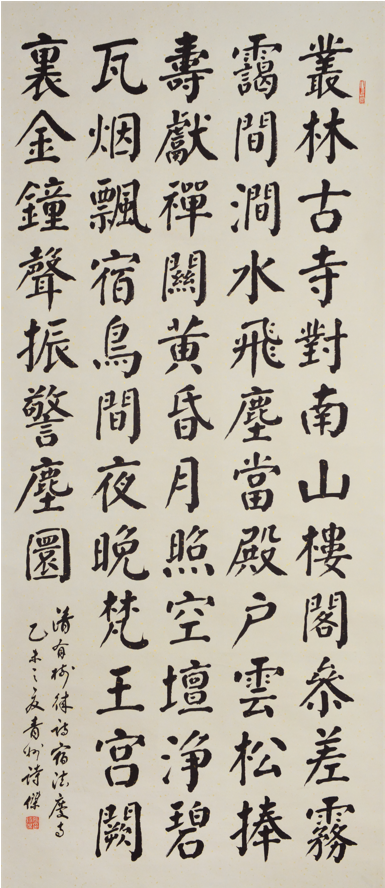 叢林古寺對南山樓閣叅差霧
靄間澗水飛塵當殿戶雲松捧
壽獻禪關黃昏月照空壇淨碧
瓦烟飄宿鳥間夜晚梵王宮闕
裏金鐘聲振警塵圜
清有樹律詩宿法度寺
乙未之夏青州詩傑